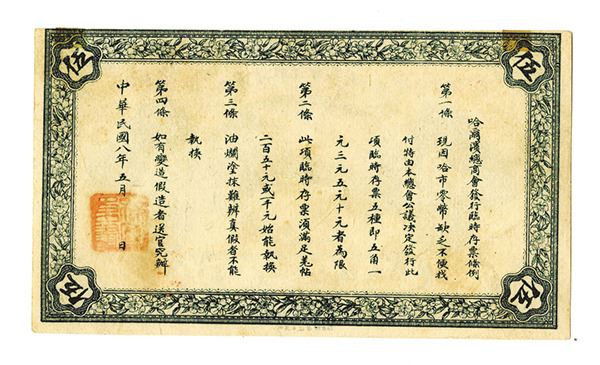 哈爾濱總商會發行臨時存票條例
第一條 現因哈市零幣缺乏不便找
付特由本總會公議决定發行此
項臨時存票五種即五角一
元三元五元十元者為限
第二條 此項臨時存票須滿足羌帖
二百五十元或一千元始能執換
第三條 油爛塗抹難辨真假者不能
執換
第四條 如有變造假造者送官究辦
中華民國八年五月 日
伍
伍
伍
伍